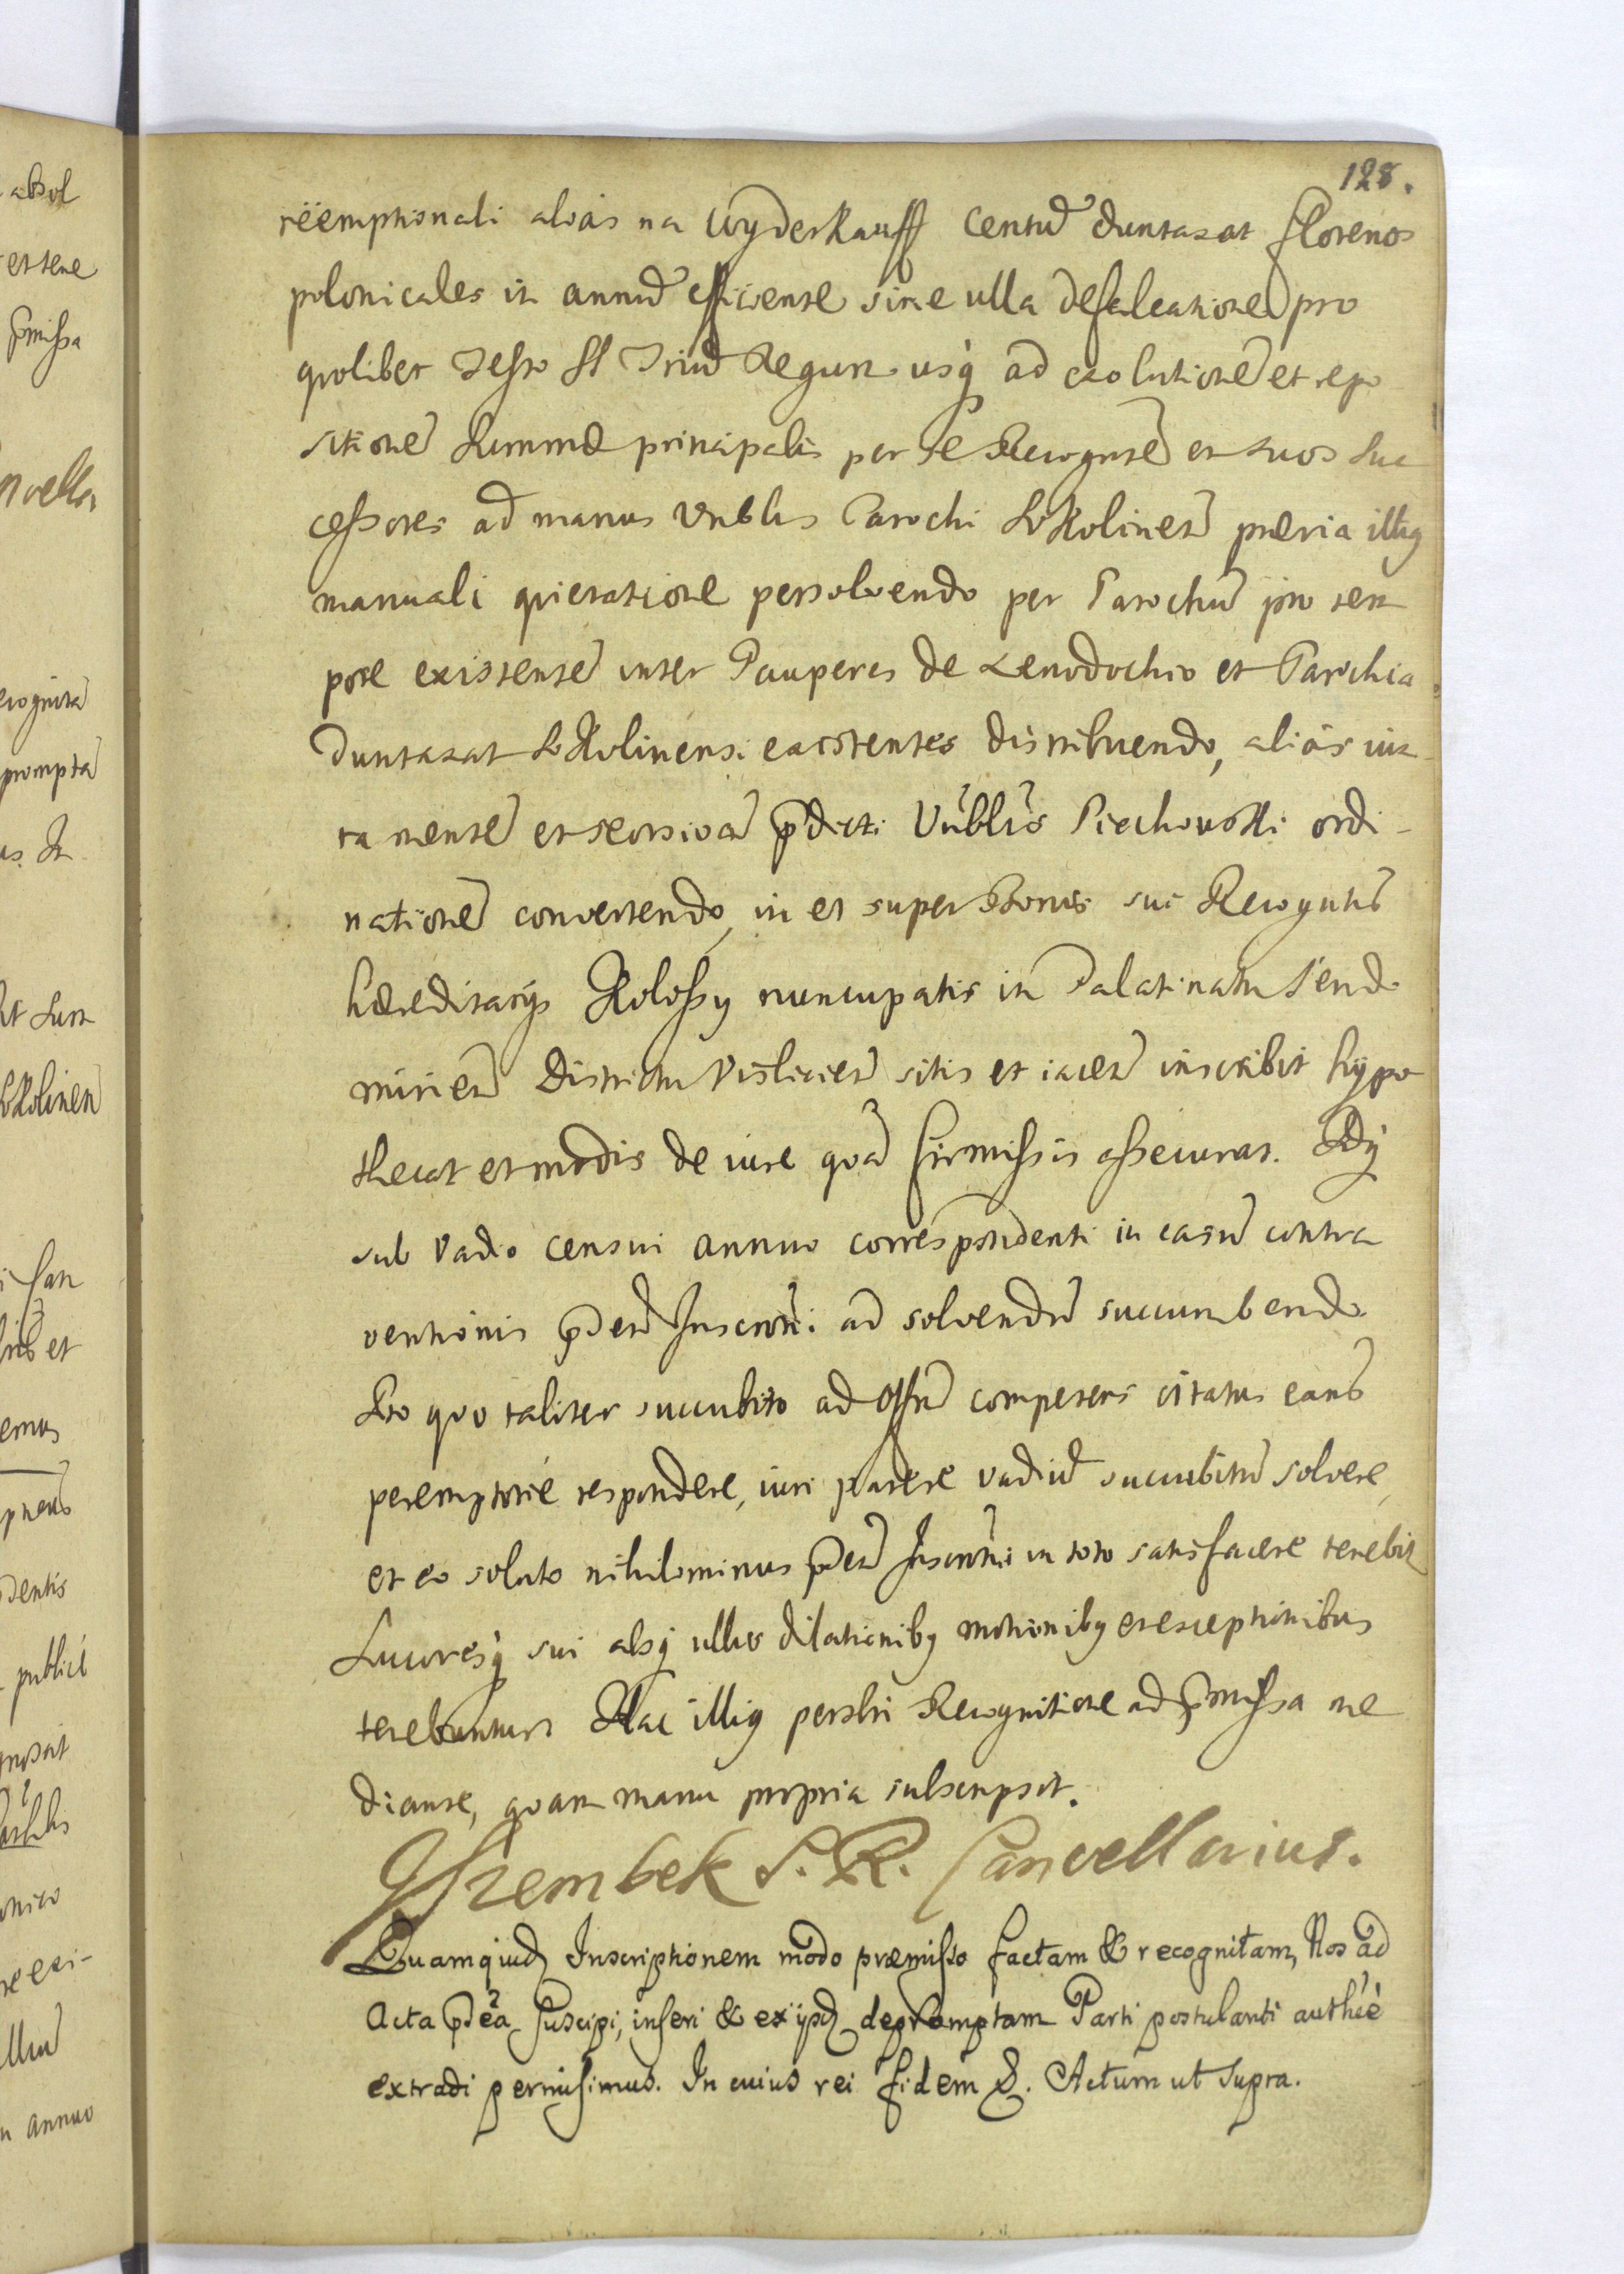 128.
rëemptionali aliàs na Wyderkauff Centũ duntaxat florenos
polonicales in annũ efficiente sine ulla defalcatione pro
quolibet Festo SS Triũ Regum usq̀ ad exolutionẽ et repo
sitionẽ Summæ principalis per se Recogntẽ et suos Suc
cessores ad manus Vnblis Parochi Sokolineñ prævia illiq
manuali quietatione persolvendo per Parochũ pro tem
pore existentẽ inter Pauperes de Xenodochio et Parochia
duntaxat Sokolinensi existentes distribuendo, aliàs iux
ta mentẽ et seorsivã p̃dicti Vnblis Piechowski ordi-
nationẽ convertendo, in et super Bonis sui Recogntis
hæreditarijs Kolossy nuncupatis in Palatinatu Sendo
mirieñ Districtu Vislicieñ sitis et iaceñ inscribit hypo
thecat et modis de iure quã firmissis assecurat. Idq̀
sub vadio censui annuo correspondenti in casũ contra
ventionis p̃deñ Inscrnĩ ad solvendũ succumbendo
Pro quo taliter succubito ad Offũ competens citatus eamẽ
peremptoriè respondere, iuri parere vadiũ succubitũ solvere,
et eo soluto nihilominus p̃deñ Inscrnĩ in toto satisfacere tenebit
Succresq̀ sui absq̀ ullis dilationibq motionibq et exceptionibus
tenebuntur Hac illiq persnlri Recognitione ad p̃missa me
diante, quam manu propria subscripsit.
JSzembek S. R. Cancellarius.
Quamquid Inscriptionem modo præmisso factam & recognitam, Nos ad
Acta p̃dca suscipi, inseri & ex ijsd depromptam Parti postulanti authcè
extradi permisimus. In cuius rei fidem &. Actum ut supra.